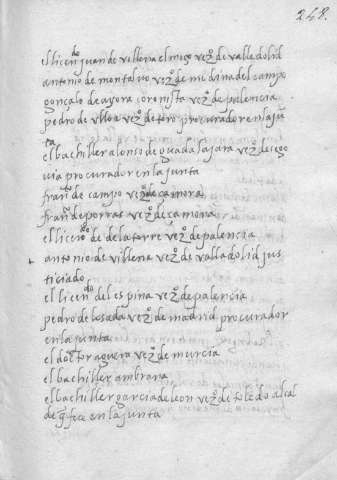 248.
el licendo juan de villena el moço vezº de valledolid
antonio de montalvo vezº de medina del campo
gonçalo de ayora coronista vezº de palencia
pedro de ulloa vezº de toro procurador en la ju
ta
el bachiller alonso de guadalajara vezº de sego
via procurador en la junta
franco de campo vezº de çamora
franco de porras vezº de çamora
el licendo de la torre vezº de palencia
antonio de villena vezº de valladolid jus
ticiado
el licendo del espina vezº de palencia
pedro de losada vezº de madrid procurador
en la junta
el dotor aguera vezº de murcia
el bachiller ambrana
el bachiller garcia de leon vezº de toledo alcal
de q fue en la junta